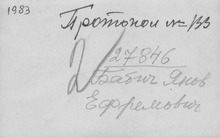 1983
Протокол № 133
2/
27846
Бабич Яков
Ефремович